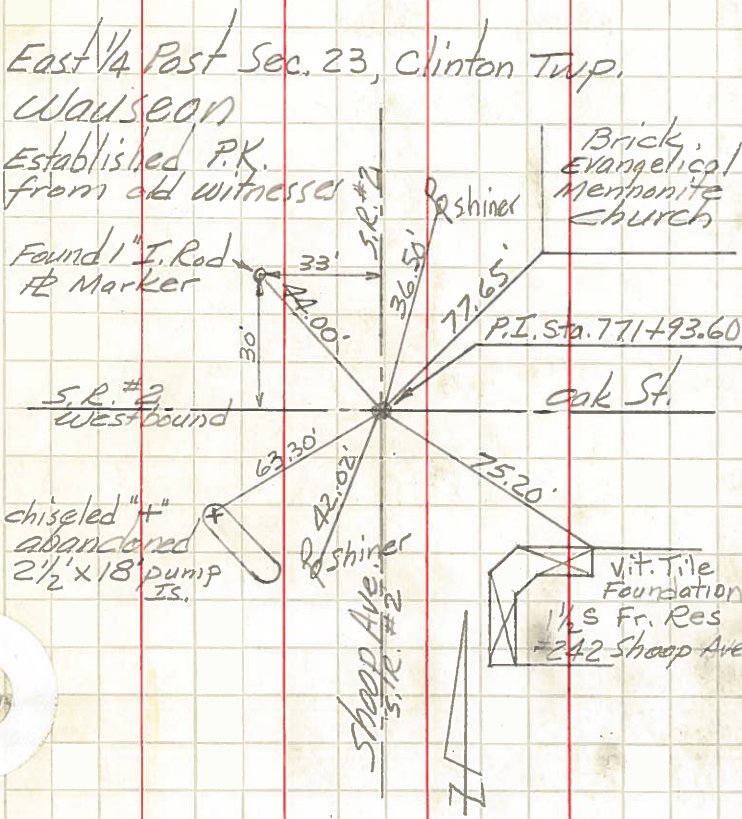 East 1/4 Post Sec. 23, Clinton Twp.
Wauseon
Established P.K.
from old witnesses
S.R. #2
shiner
Brick
Evangelical
Mennonite
Church
Found 1" I. Rod
PL Marker
33'
30'
44.00'
36.50'
77.65'
P.I. Sta. 771+93.60
S.R. #2
Westbound
Oak St.
63.30'
42.02'
75.20'
chiseled "+"
abandoned
2 1/2' x 18' pump
Is.
shiner
Shoop Ave.
S.R. #2
Vit. Tile
Foundation
1 1/2 S Fr. Res
#242 Shoop Ave